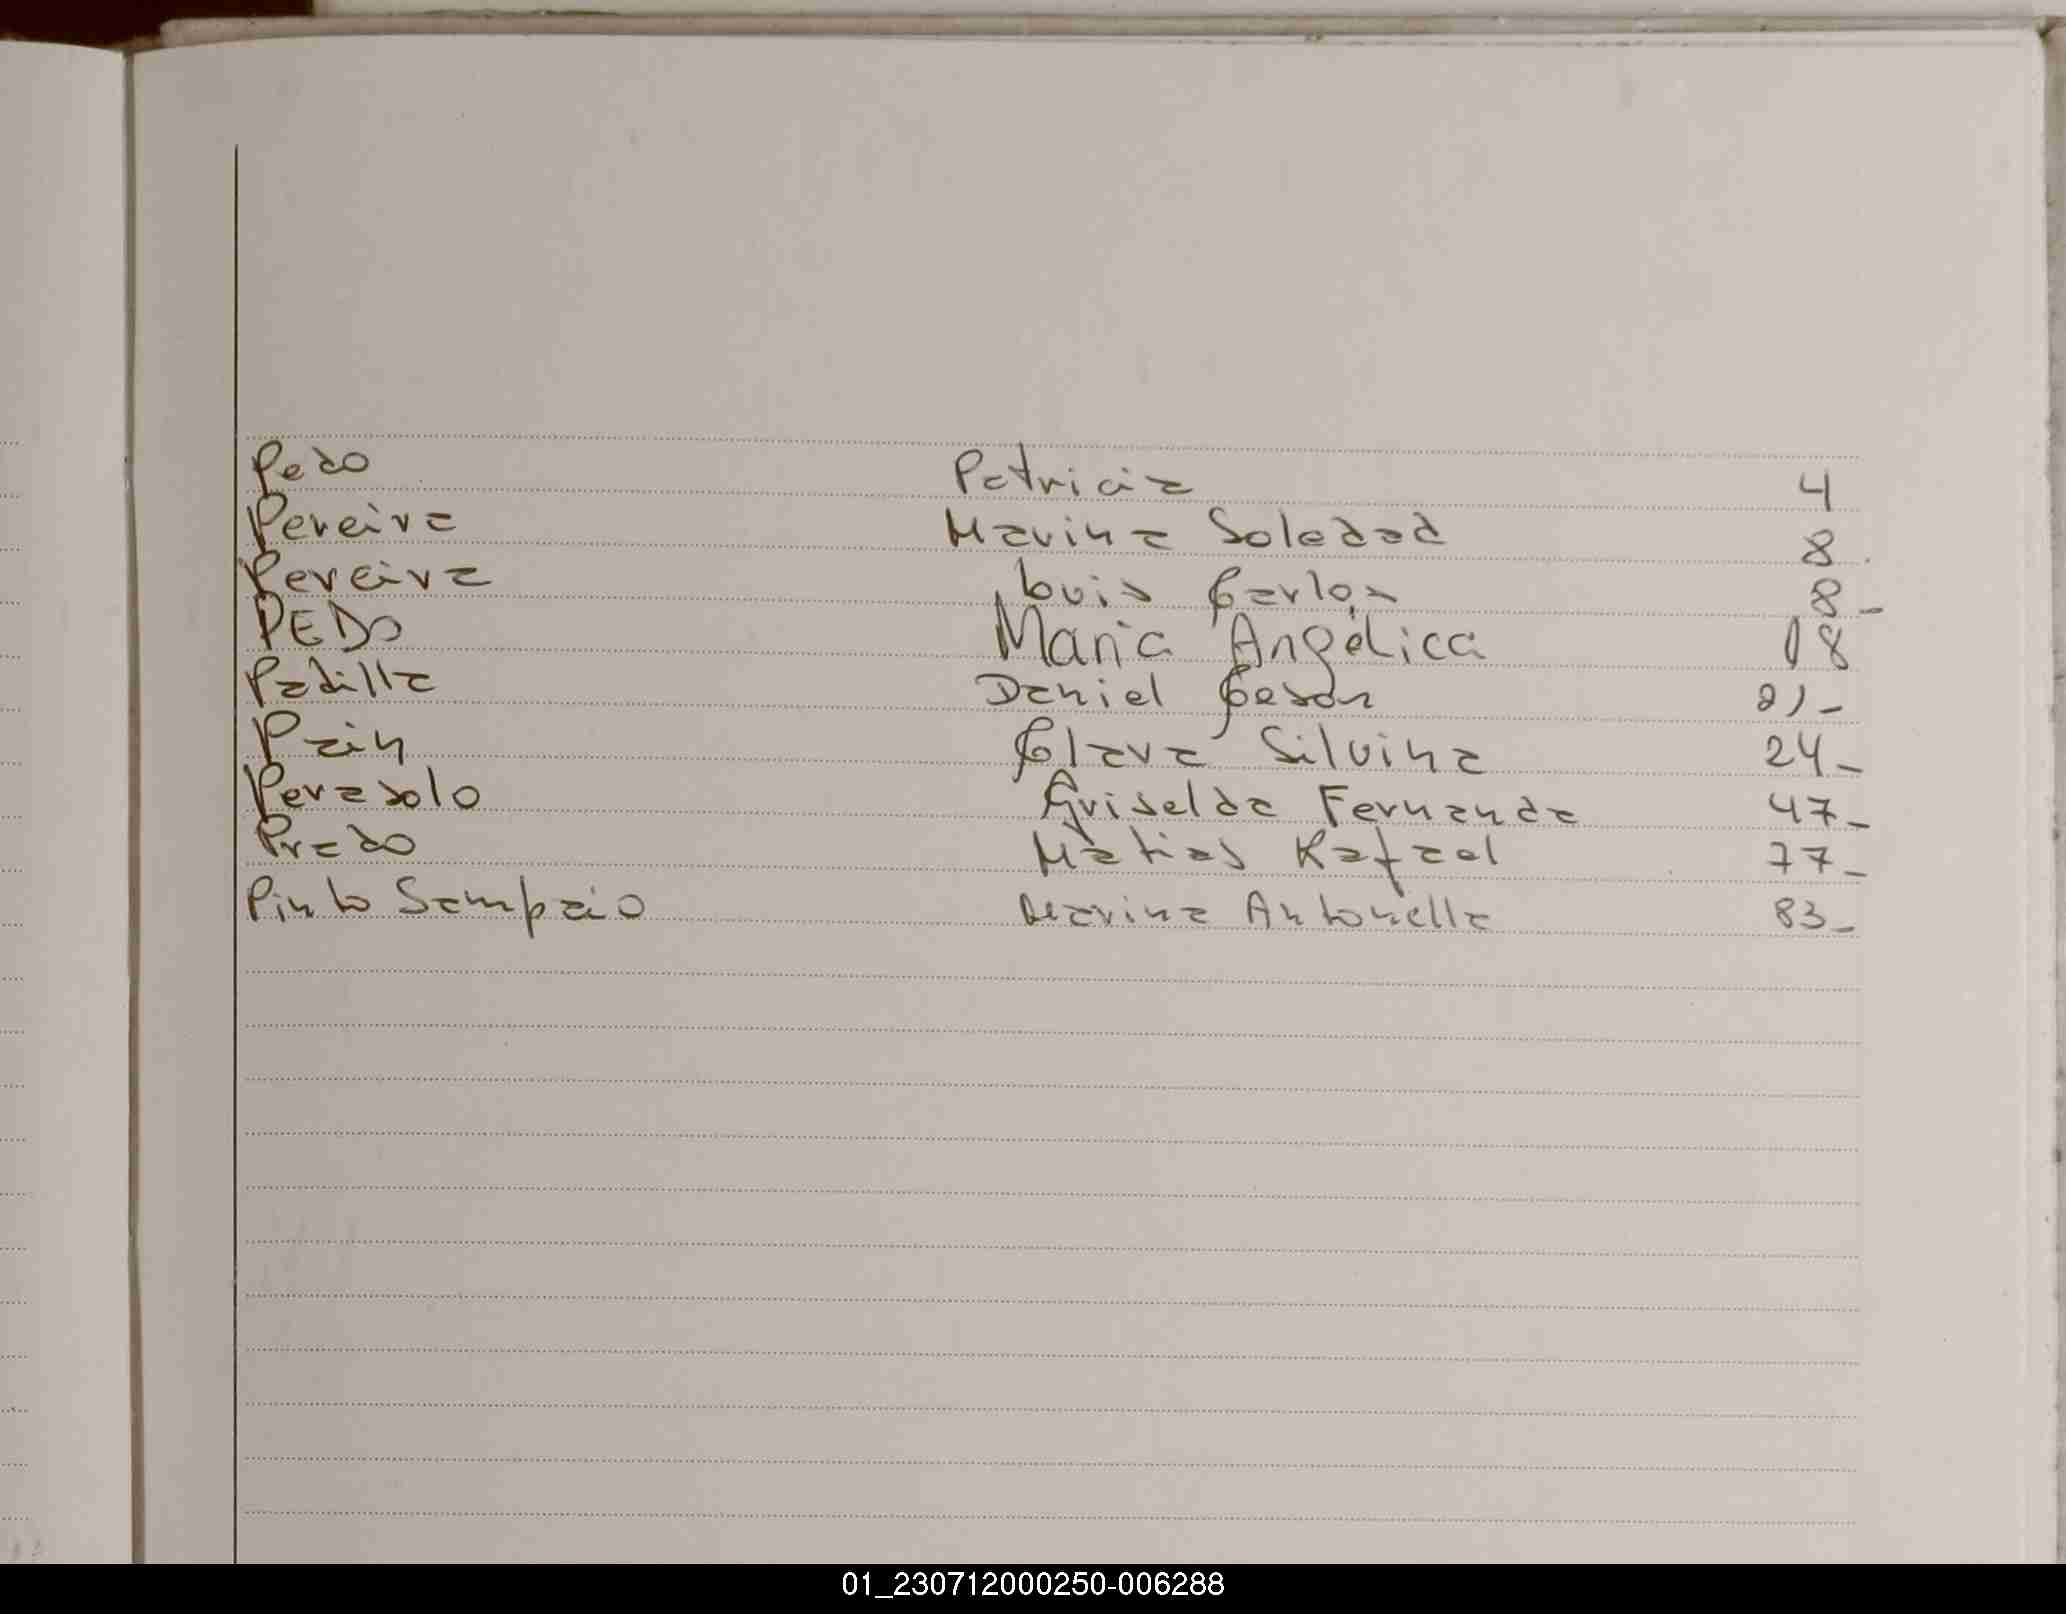 Pedo Patricia 4
Pereira Marina Soledad 8
Pereira Luis Carlos 8-
PEDO María Angélica 18
Padilla Daniel Cesar 21-
Pain Clara Silvina 24-
Perasolo Griselda Fernanda 47-
Prado Matias Rafael 77-
Pinto Sampaio Marina Antonella 83-
01_230712000250-006288